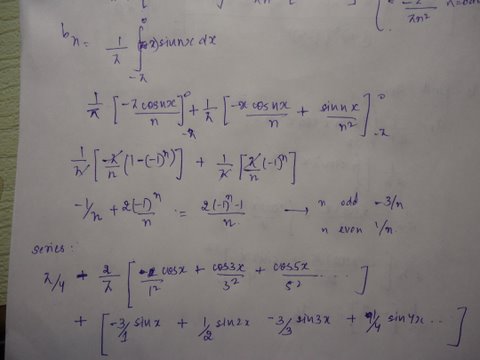 -2/πn² n=odd
bₙ = 1/π ∫₋π⁰ (x) sin nx dx
1/π [-π cos nx / n]₋π⁰ + 1/π [-x cos nx / n + sin nx / n²]₋π⁰
1/π [-π/n (1-(-1)ⁿ)] + 1/π [π/n (-1)ⁿ]
-1/n + 2(-1)ⁿ/n = 2(-1)ⁿ-1 / n → n odd -3/n
n even 1/n
series:
π/4 + 2/π [cos x / 1² + cos 3x / 3² + cos 5x / 5² ...]
+ [-3/1 sin x + 1/2 sin 2x -3/3 sin 3x + 1/4 sin 4x ...]